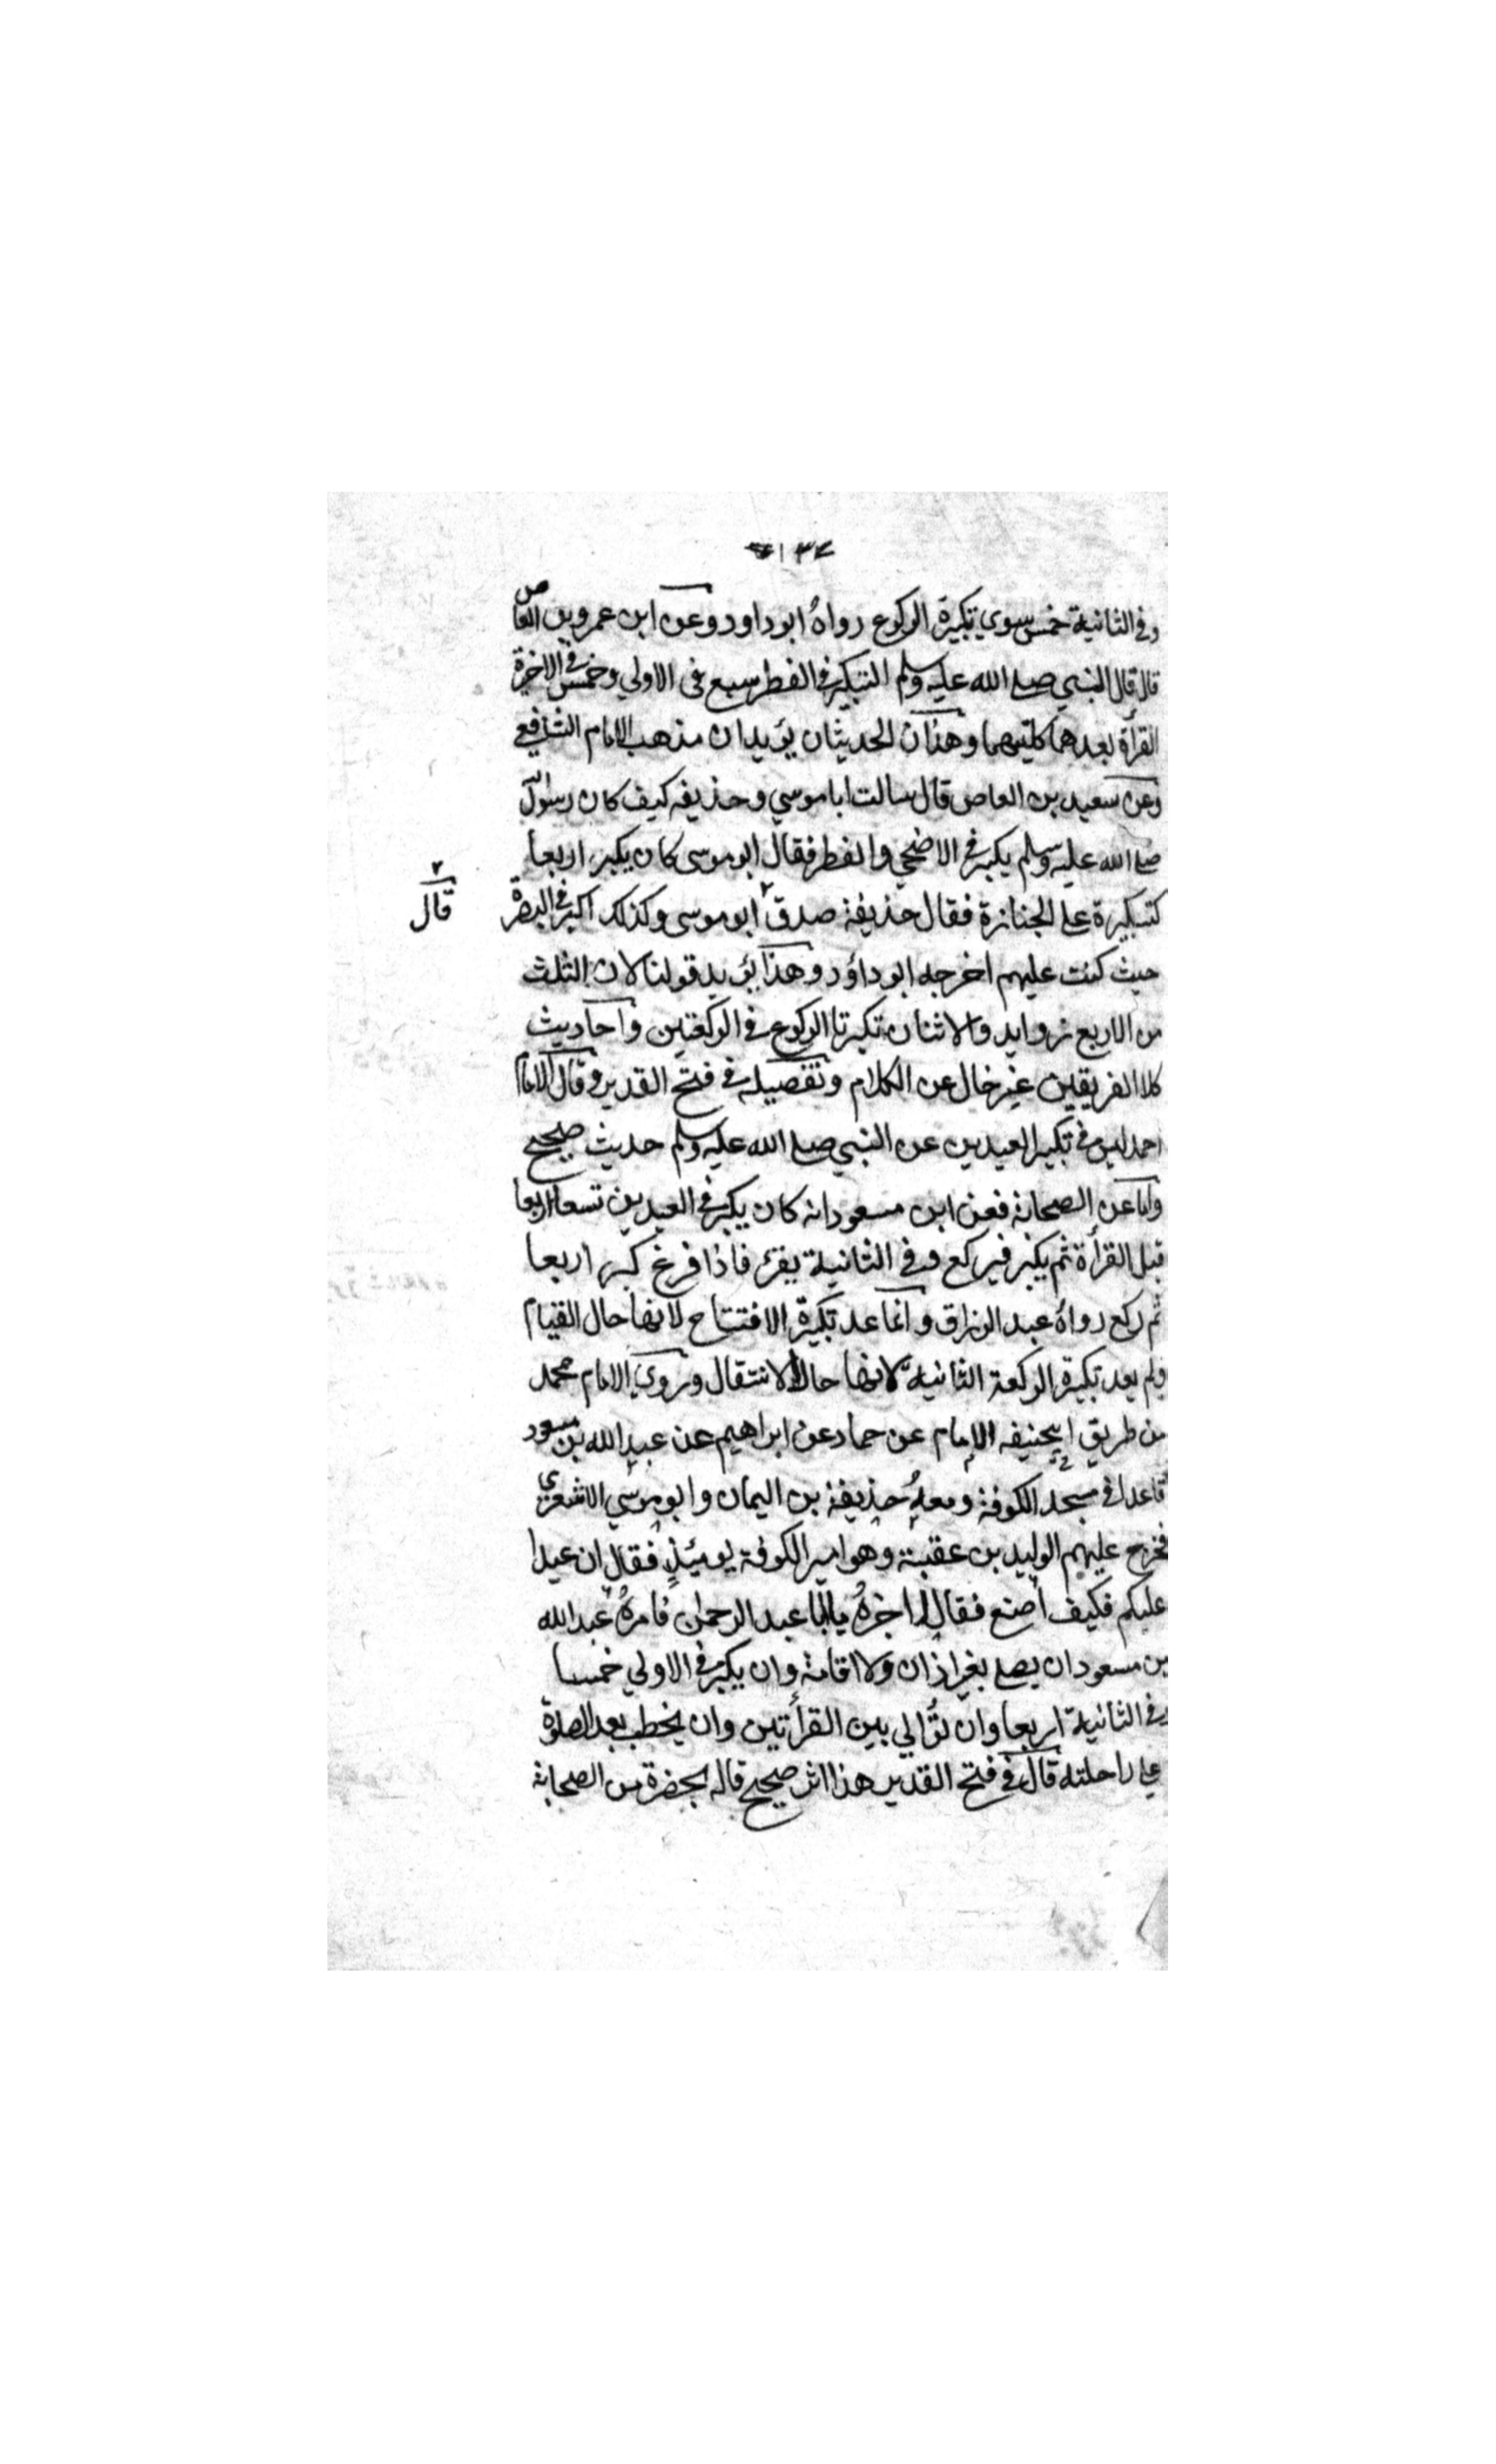 ١٣٤
وفي الثانية خمس سوي تكبيرة الركوع رواهُ ابو داود وعن ابن عمرو بن العاص
قال قال النبي صلے الله عليه وسلم التكبير في الفطر سبع في الاولي وخمس في الاخيرة
القرأة بعدهما كليتهما وهذان الحديثان يؤيدان مذهب الامام الشافعي
وعن سعيد بن العاص قال سالت ابا موسي وحذيفه كيف كان رسول الله
صلے الله عليه وسلم يكبر في الاضحي والفطر فقال ابو موسى كان يكبر اربعا
كتكبيرة علے الجنازة فقال حذيفة صدق ٢ ابو موسى وكذلك اكبر في البصرة
٢ قال
حيث كنت عليهم اخرجه ابو داؤد وهذا يؤيد قولنا لان الثلث
من الاربع زوايد والاثنان تكبرتا الركوع في الركعتين واحاديث
كلا الفريقين غير خال عن الكلام وتفصيله في فتح القدير وقال الامام
احمد ليس في تكبير العيدين عن النبي صلے الله عليه وسلم حديث صحيح
واما عن الصحابة فعن ابن مسعود انه كان يكبر في العيدين تسعا اربعا
قبل القرأة ثم يكبر فيركع وفي الثانية يقرء فاذا فرغ كبر اربعا
ثم ركع رواهُ عبد الرزاق وانما عد تكبيرة الافتتاح لانها حال القيام
ولم يعد تكبيرة الركعة الثانية لانها حال الانتقال وروي الامام محمد
من طريق ابيحنيفه الامام عن حماد عن ابراهيم عن عبد الله بن مسعود
قاعدا في مسجد الكوفة ومعهُ حذيفة بن اليمان وابو موسي الاشعري
فخرج عليهم الوليد بن عقبة وهو امير الكوفة يومئذٍ فقال ان عيدا
عليكم فكيف اصنع فقال اخبرهُ يا ابا عبد الرحمن فامرهُ عبد الله
بن مسعود ان يصلے بغير اذان ولا اقامة وان يكبر في الاولي خمسا
وفي الثانية اربعا وان يُوالي بين القرأتين وان يخطب بعد الصلوة
علے راحلته قال في فتح القدير هذا اثر صحيح قاله بحضرة من الصحابة